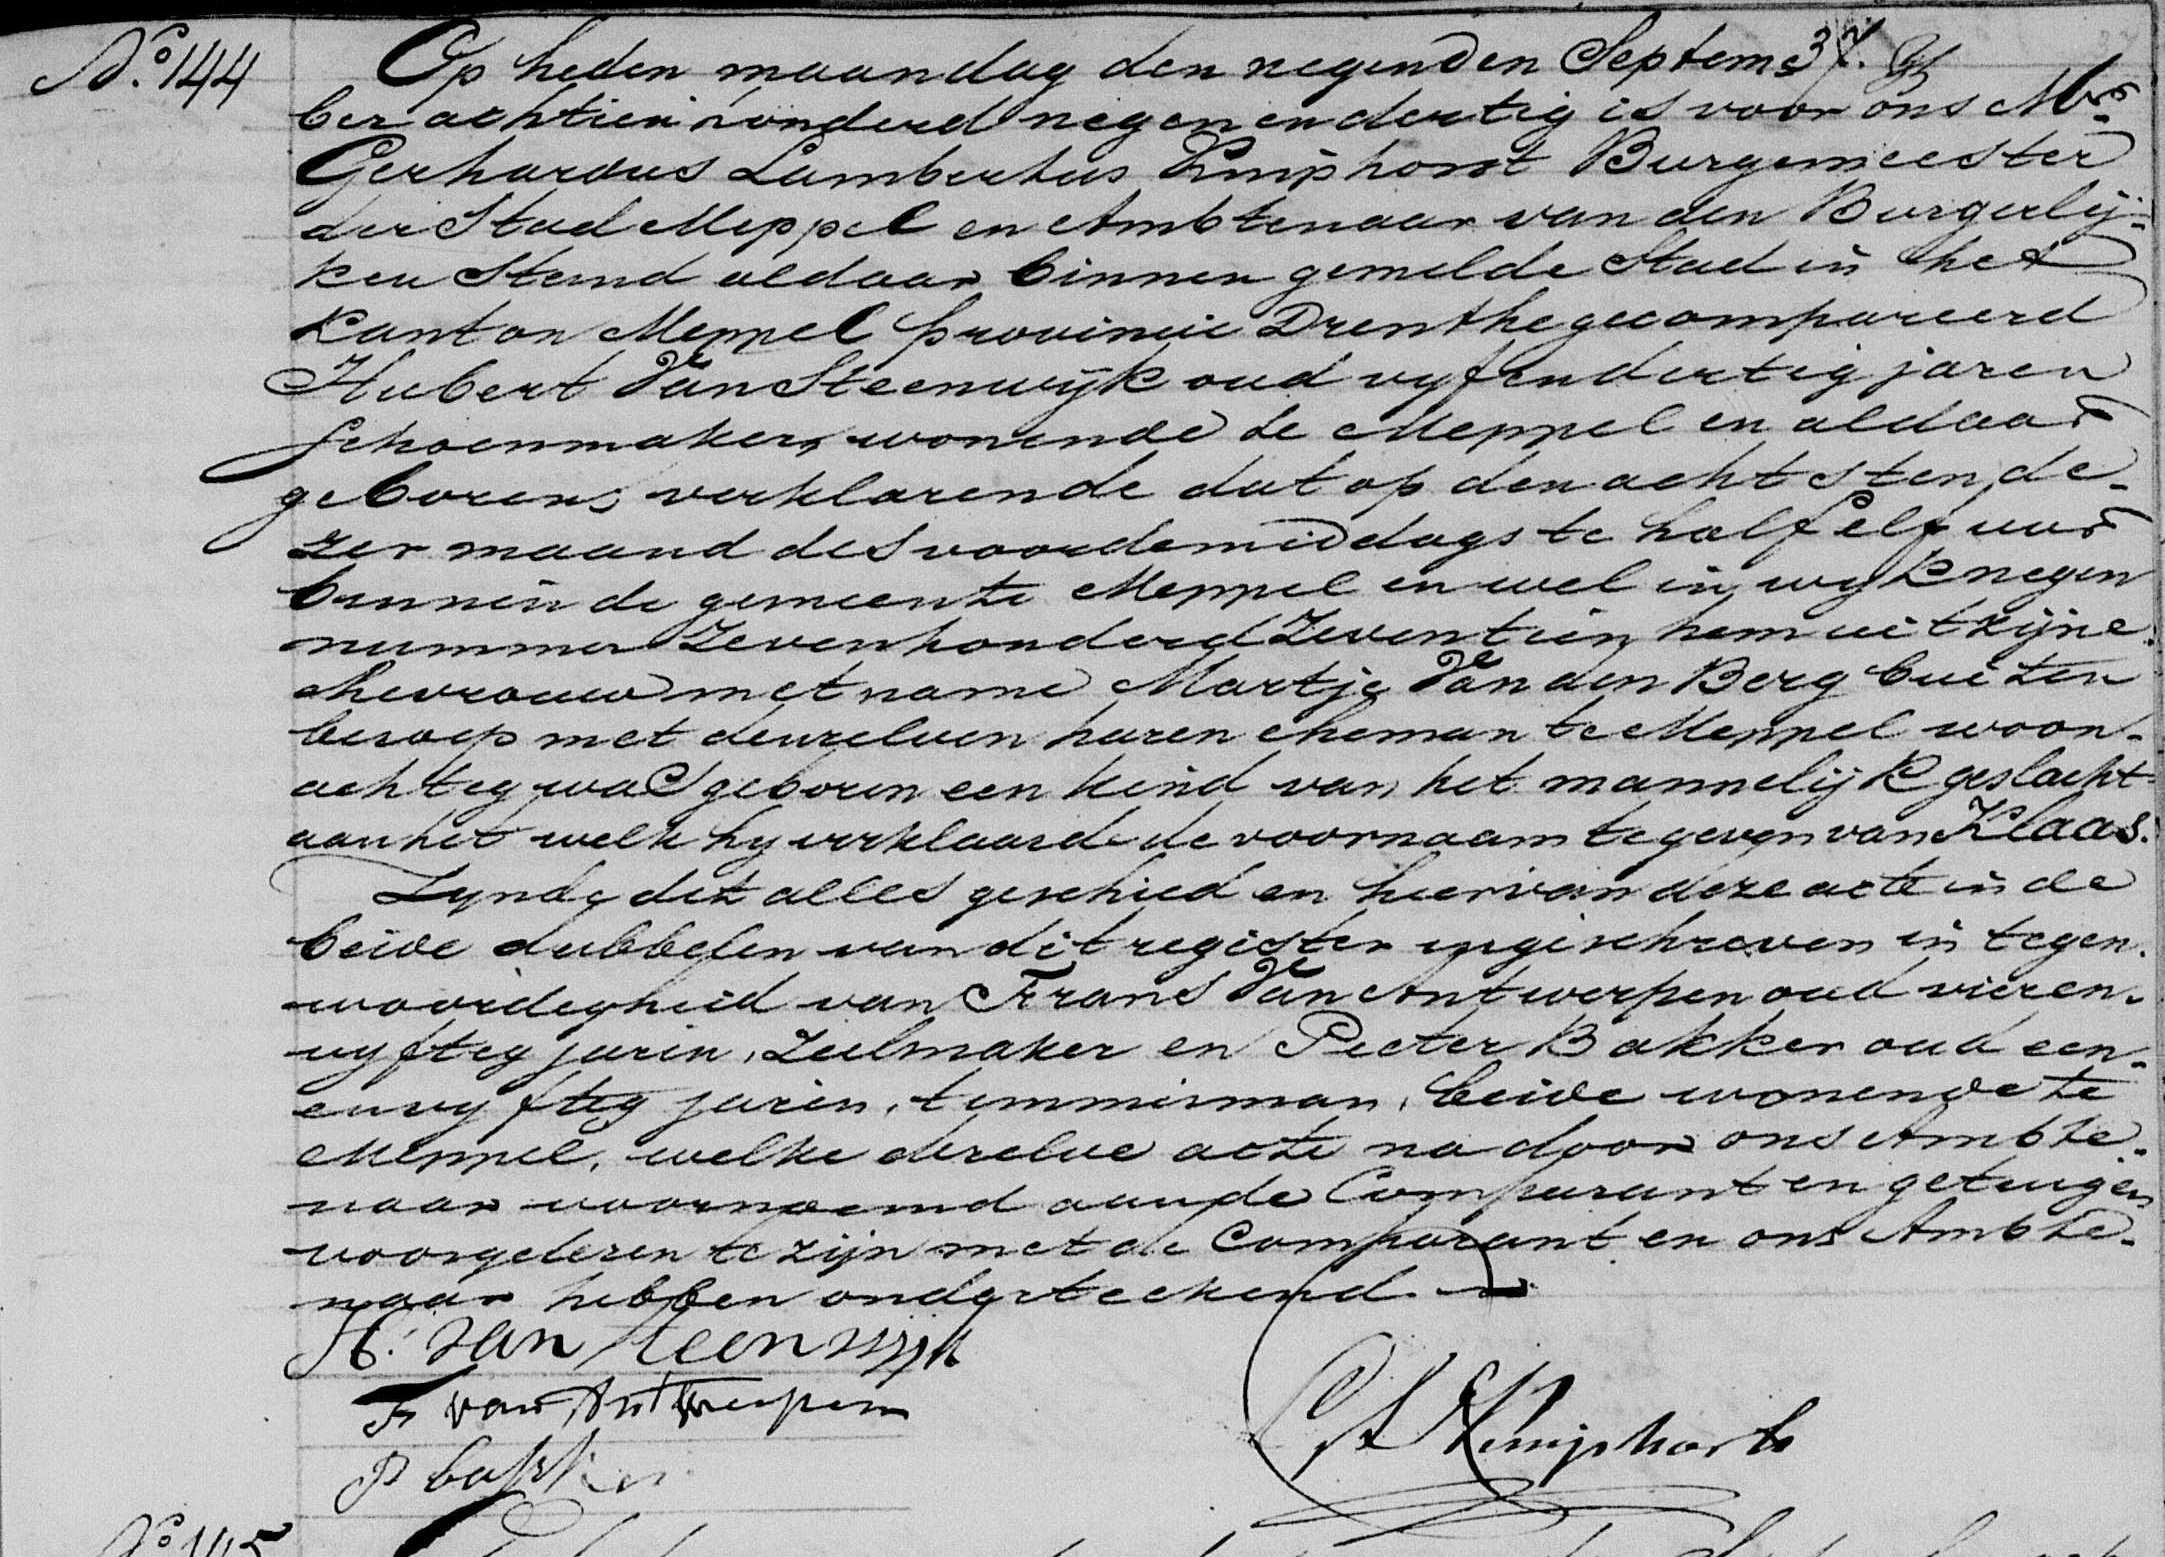 No. 144
Op heden maandag den negenden Septem-
ber achtien honderd negen en dertig is voor ons Mr.
Gerhardus Lambertus Knijphorst Burgemeester
der Stad Meppel en Ambtenaar van den Burgerlij-
ken Stand aldaar binnen gemelde Stad in het
Kanton Meppel provincie Drenthe gecompareerd
Hubert Van Steenwijk oud vyf en dertig jaren
schoenmaker, wonende te Meppel en aldaar
geboren, verklarende dat op den achtsten de-
zer maand des voordemiddags te half elf uur
binnen de gemeente Meppel en wel in wyk negen
nummer zevenhonderd zeventien hem uit zijne
ehevrouw met name Martje Van den Berg buiten
beroep met denzelven haren eheman te Meppel woon-
achtig was geboren een kind van het mannelijk geslacht
aan het welk hy verklaarde de voornaam te geven van Klaas.
Zynde dit alles geschied en hiervan deze acte in de
beide dubbelen van dit register ingeschreven in tegen-
woordigheid van Frans Van Antwerpen oud vier en-
vyftig jaren, Zeelmaker en Pieter Bakker oud een-
envyftig jaren, timmerman, beide wonende te
Meppel, welke dezelve acte na door ons Ambte-
naar voornoemd aan de Comparant en getuigen
voorgelezen te zijn met de Comparant en ons Ambte-
naar hebben onderteekend.
H. van Steenwijk
F van Antwerpen
GL Knijphorst
P bakker
No. 145